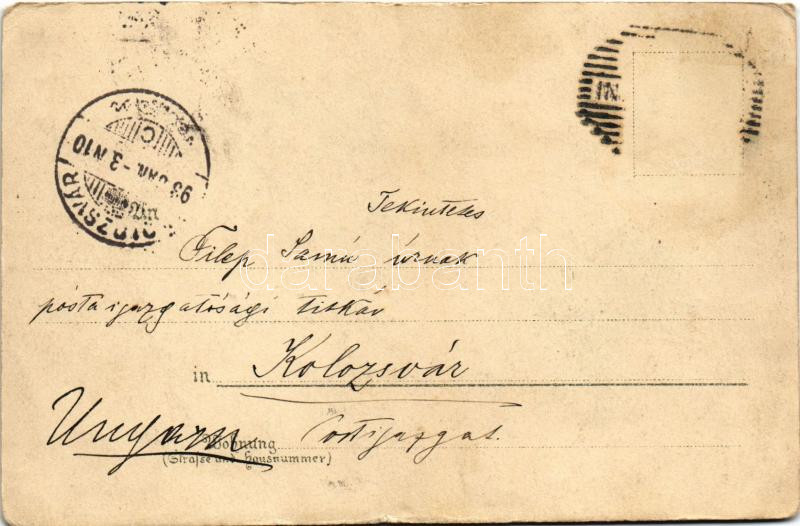 KOLOZSVÁR
98 JAN. -3. N10
C
IN
Tekintetes
Filep Samu úrnak
posta igazgatósági titkár
in Kolozsvár
Ungarn
Wohnung
(Strafse und Hausnummer)
Postigazgat.
darabanth